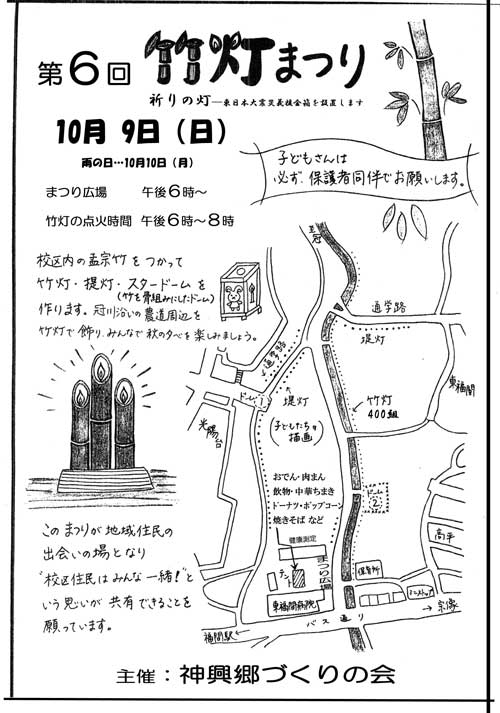 第6回 竹灯まつり
祈りの灯―東日本大震災義援金箱を設置します
10月 9日（日）
雨の日…10月10日（月）
まつり広場 午後6時～
竹灯の点火時間 午後6時～8時
子どもさんは
必ず、保護者同伴でお願いします。
校区内の孟宗竹をつかって
竹灯・提灯・スタードームを
(竹を骨組みにしたドーム)
作ります。冠川沿いの農道周辺を
竹灯で飾り、みんなで秋の夕べを楽しみましょう。
通学路
堤灯
通学路
東福間
ドーム①
堤灯
竹灯
400組
光陽台
(子どもたちの描画)
おでん・肉まん
飲物・中華ちまき
ドーナツ・ポップコーン
焼きそば など
ドーム②
健康測定
高平
テント
まつり広場
保育所
東福間病院
ミニストップ
→宗像
バス通り
福間駅←
このまつりが地域住民の
出会いの場となり
"校区住民はみんな一緒!"と
いう思いが共有できることを
願っています。
主催：神興郷づくりの会